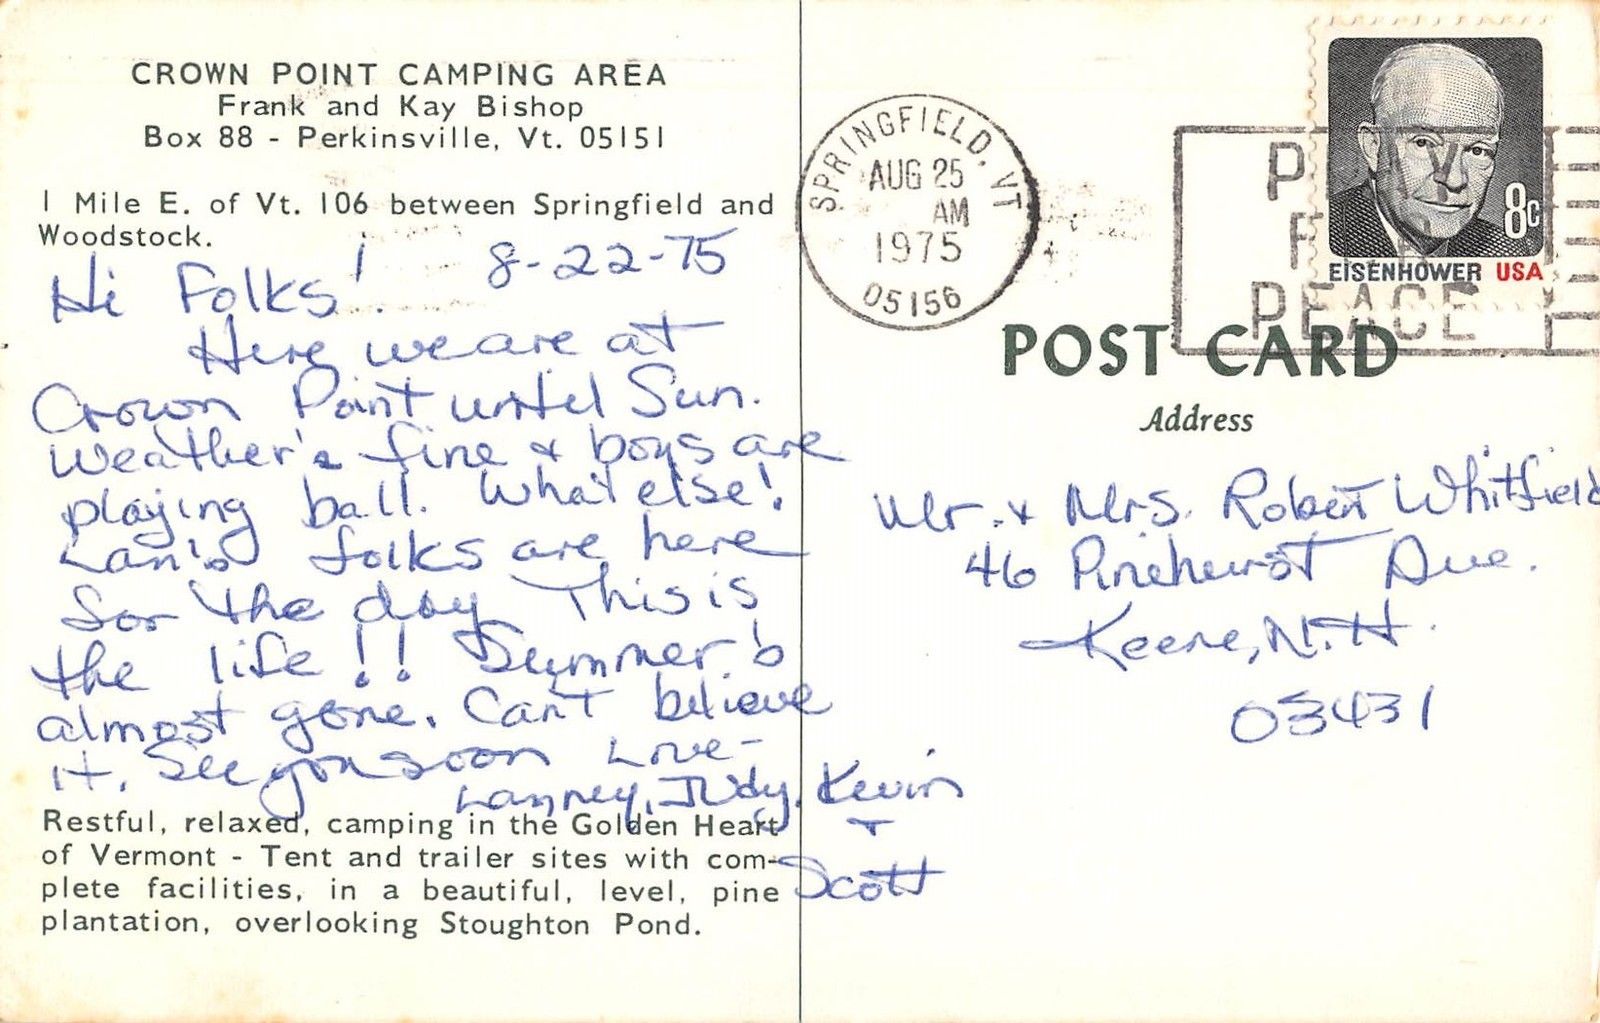 CROWN POINT CAMPING AREA
Frank and Kay Bishop
Box 88 - Perkinsville, Vt. 05151
1 Mile E. of Vt. 106 between Springfield and
Woodstock.
8-22-75
Hi Folks!
Here we are at
Crown Point until Sun.
Weather's fine & boys are
playing ball. What else!
Lan's folks are here
for the day. This is
the life!! Summer's
almost gone. Can't believe
it. See you soon Love-
Lanney, Judy, Kevin
+
Scott
Restful, relaxed, camping in the Golden Heart
of Vermont - Tent and trailer sites with com-
plete facilities, in a beautiful, level, pine
plantation, overlooking Stoughton Pond.
SPRINGFIELD, VT
AUG 25
AM
1975
05156
PRAY
FOR
PEACE
8c
EISENHOWER USA
POST CARD
Address
Mr. & Mrs. Robert Whitfield
46 Pinehurst Ave.
Keene, N.H.
03431